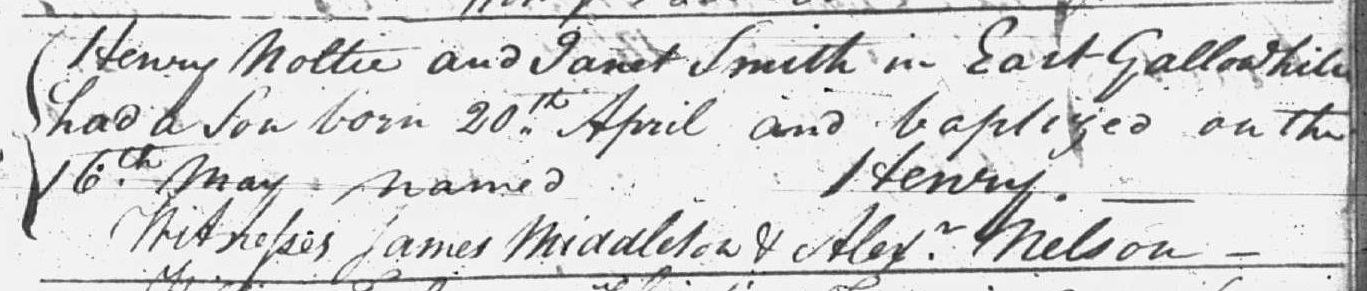 Henry Mottie and Janet Smith in East Gallowhill
had a Son born 20th April and baptized on the
16th May named Henry.
Witnesses James Middleton & Alexr. Nelson –